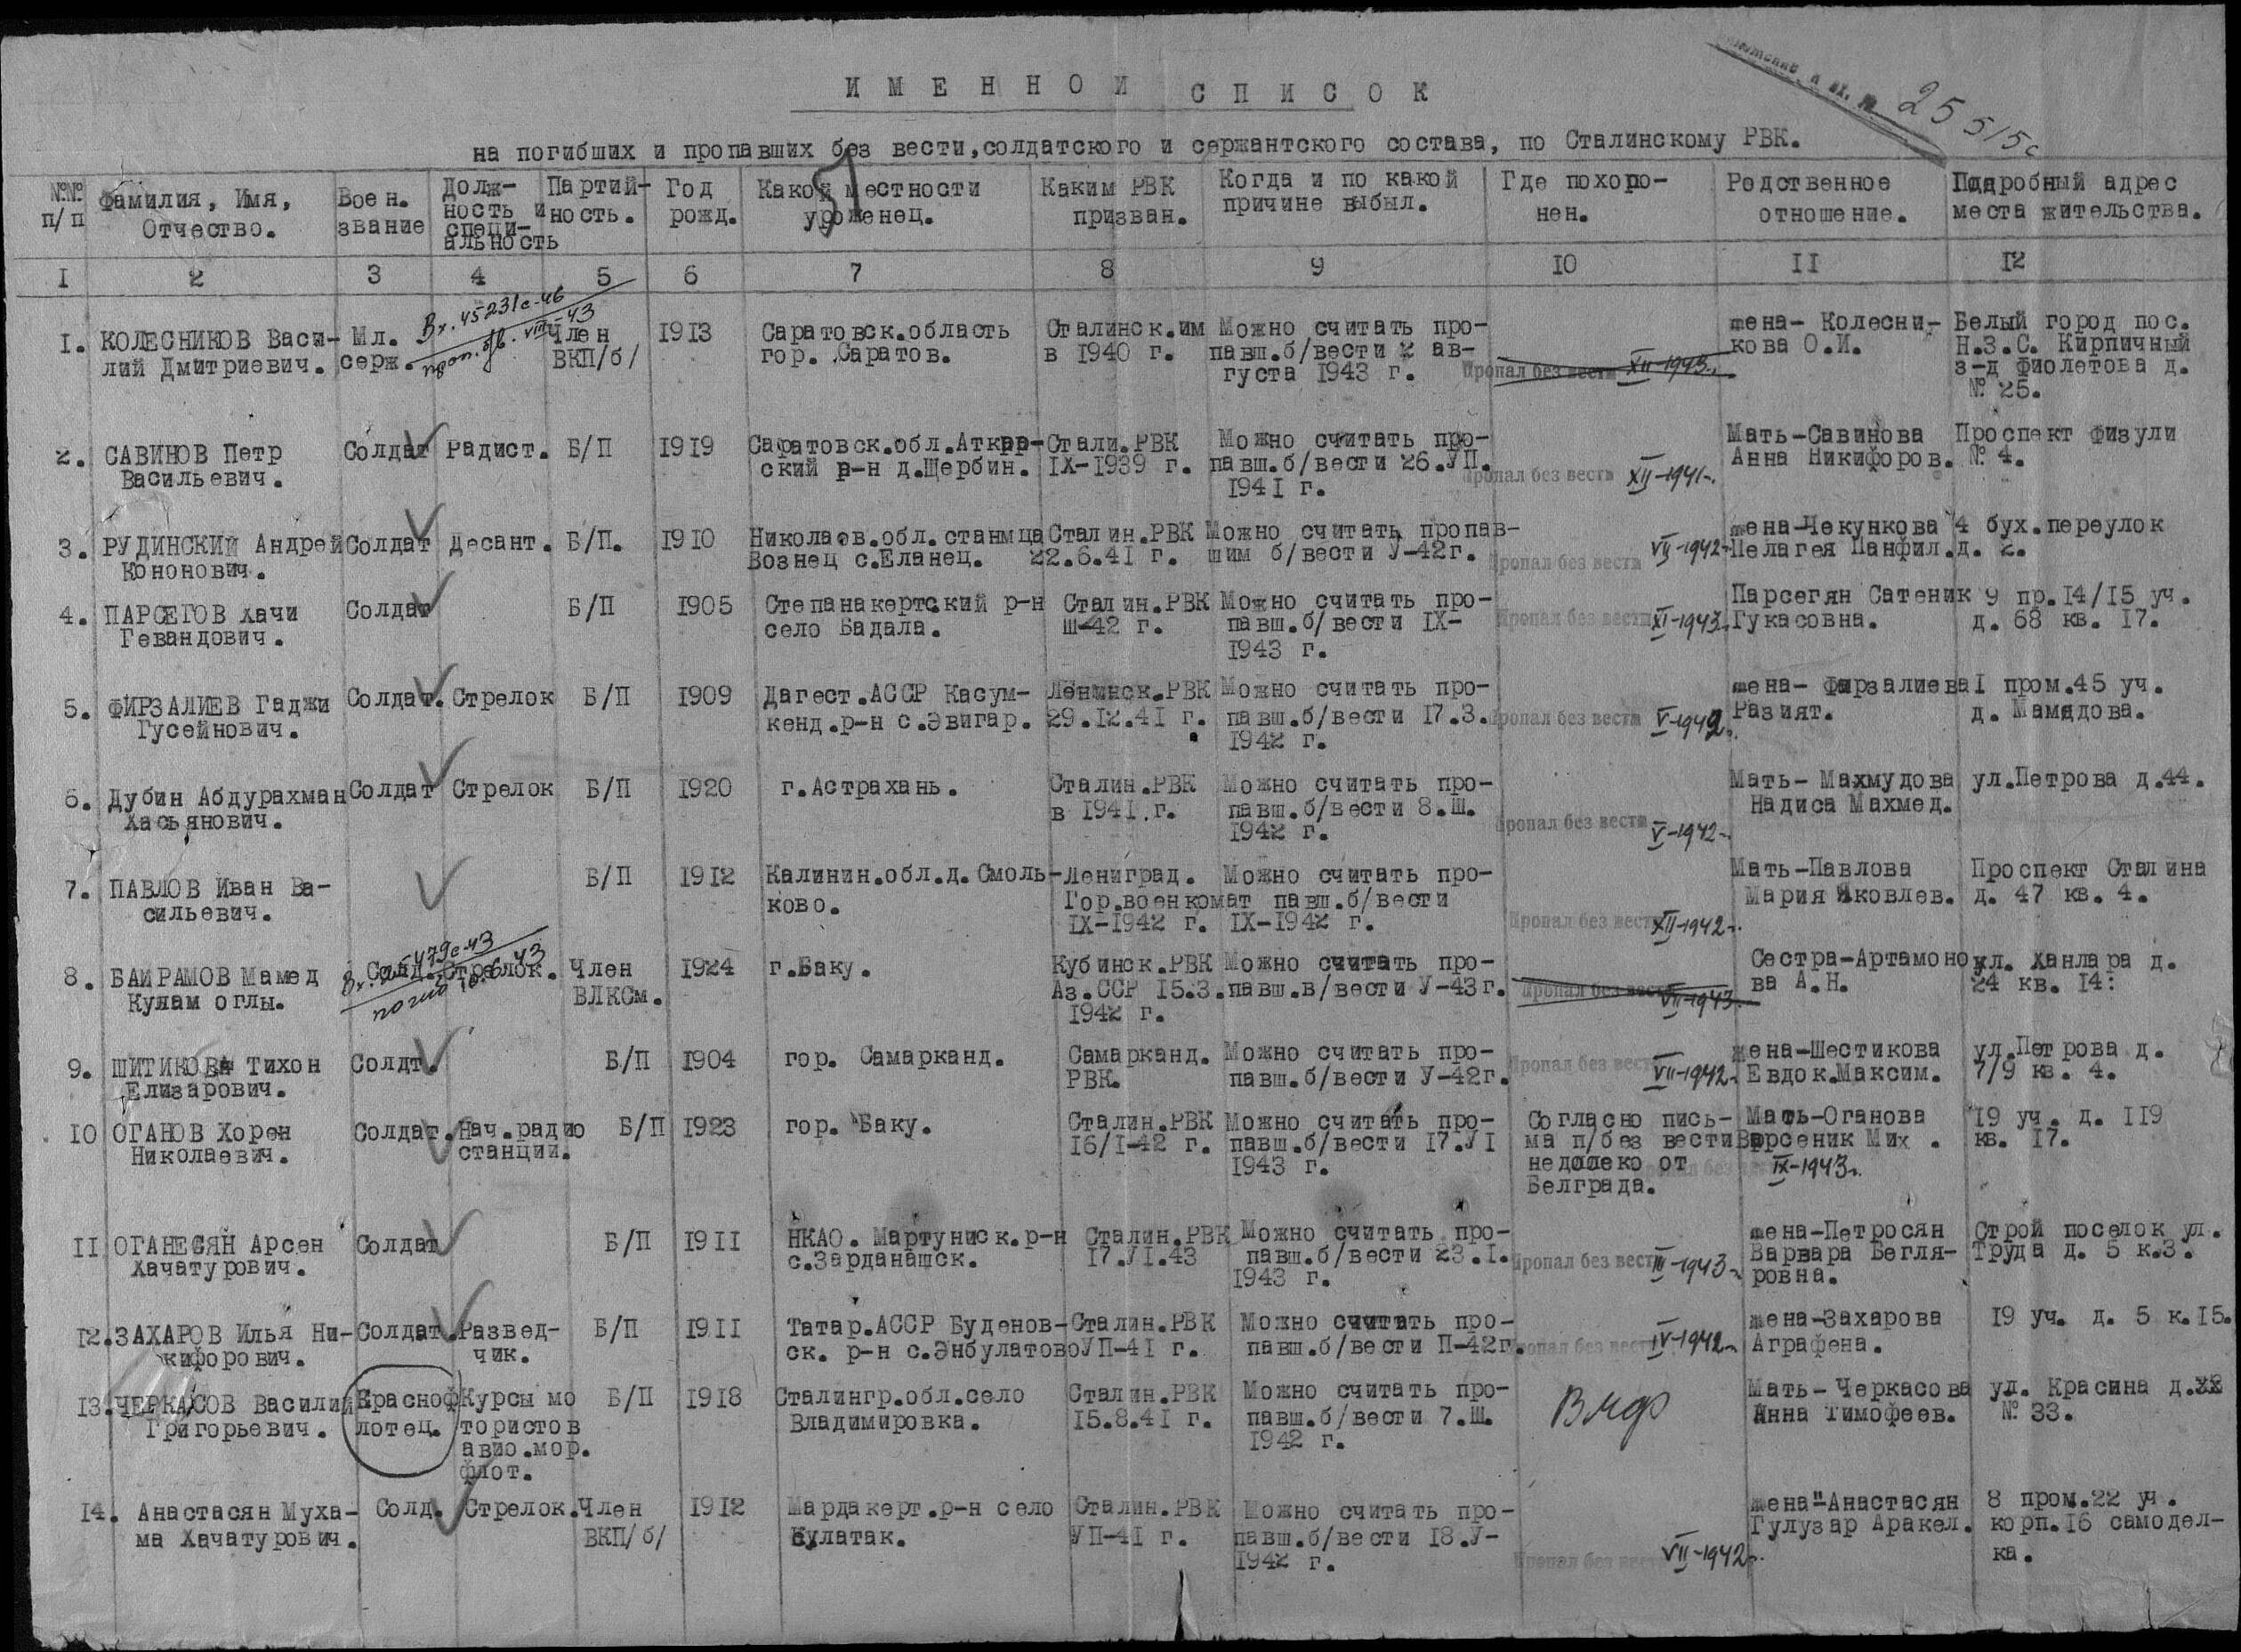 ИМЕННОЙ СПИСОК
25515с
на погибших и пропавших без вести, солдатского и сержантского состава, по Сталинскому РВК.
51
№№ п/п | Фамилия, Имя, Отчество. | Воен. звание | Долж-ность и специ-альность | Партий-ность. | Год рожд. | Какой местности уроженец. | Каким РВК призван. | Когда и по какой причине выбыл. | Где похоро-нен. | Родственное отношение. | Подробный адрес места жительства.
I 2 3 4 5 6 7 8 9 10 II 12
Вх. 45231с-46
проп. б/в. VIII-43
I. КОЛЕСНИКОВ Васи- Мл. Член 1913 Саратовск.область Сталинск.им Можно считать про- жена- Колесни- Белый город пос.
лий Дмитриевич. серж. ВКП/б/ гор. Саратов. в 1940 г. павш.б/вести 2 ав- кова О.И. Н.З.С. Кирпичный
густа 1943 г. Пропал без вести XII-1943г. з-д Фиолетова д.
№ 25.
2. САВИНОВ Петр Солдат Радист. Б/П 1919 Саратовск.обл.Аткар- Стали.РВК Можно считать про- Мать-Савинова Проспект Физули
Васильевич. ский р-н д.Щербин. IX-1939 г. павш.б/вести 26.УП. Анна Никифоров. № 4.
1941 г. Пропал без вести XII-1941г.
3. РУДИНСКИЙ Андрей Солдат Десант. Б/П. 1910 Николаев.обл.станмца Сталин.РВК Можно считать пропав- жена-Чекункова 4 бух.переулок
Кононович. Вознец с.Еланец. 22.6.41 г. шим б/вести У-42г. Пропал без вести VII-1942г. Пелагея Панфил. д. 2.
4. ПАРСЕГОВ Хачи Солдат Б/П 1905 Степанакертский р-н Сталин.РВК Можно считать про- Парсегян Сатеник 9 пр.14/15 уч.
Гевандович. село Бадала. Ш-42 г. павш.б/вести IX- Пропал без вести XI-1943г. Гукасовна. д. 68 кв. 17.
1943 г.
5. ФИРЗАЛИЕВ Гаджи Солдат. Стрелок Б/П 1909 Дагест.АССР Касум- Ленинск.РВК Можно считать про- жена- Фирзалиева I пром.45 уч.
Гусейнович. кенд.р-н с.Эвигар. 29.12.41 г. павш.б/вести 17.3. Пропал без вести V-1942г. Разият. д. Мамедова.
1942 г.
6. Дубин Абдурахман Солдат Стрелок Б/П 1920 г.Астрахань. Сталин.РВК Можно считать про- Мать- Махмудова ул.Петрова д.44.
Хасьянович. в 1941.г. павш.б/вести 8.Ш. Надиса Махмед.
1942 г. Пропал без вести V-1942г.
7. ПАВЛОВ Иван Ва- Б/П 1912 Калинин.обл.д.Смоль- Лениград. Можно считать про- Мать-Павлова Проспект Сталина
сильевич. ково. Гор.военкомат павш.б/вести Мария Яковлев. д. 47 кв. 4.
IX-1942 г. IX-1942 г. Пропал без вести XII-1942г.
погиб 10.6.43
8. БАЙРАМОВ Мамед Солд. Стрелок. Член 1924 г.Баку. Кубинск.РВК Можно считать про- Сестра-Артамоно ул. Ханлара д.
Кулам оглы. ВЛКСм. Аз.ССР 15.3. павш.в/вести У-43г. Пропал без вести VII-1943г. ва А.Н. 24 кв. 14:
1942 г.
9. ШИТИКОВА Тихон Солдт. Б/П 1904 гор. Самарканд. Самарканд. Можно считать про- жена-Шестикова ул.Петрова д.
Елизарович. РВК. павш.б/вести У-42г. Пропал без вести VII-1942г. Евдок.Максим. 7/9 кв. 4.
10 ОГАНОВ Хорен Солдат. Нач.радио Б/П 1923 гор. Баку. Сталин.РВК Можно считать про- Согласно пись- Мать-Оганова 19 уч. д. 119
Николаевич. станции. 16/I-42 г. павш.б/вести 17.УI ма п/без вести Варсеник Мих. кв. 17.
1943 г. недалеко от IX-1943г.
Белграда.
II ОГАНЕСЯН Арсен Солдат Б/П 1911 НКАО. Мартуниск.р-н Сталин.РВК Можно считать про- жена-Петросян Строй поселок ул.
Хачатурович. с.Зарданашск. 17.УI.43 павш.б/вести 23.I. Пропал без вести III-1943г. Варвара Бегля- Труда д. 5 к.3.
1943 г. ровна.
12. ЗАХАРОВ Илья Ни- Солдат. Развед- Б/П 1911 Татар.АССР Буденов- Сталин.РВК Можно считать про- жена-Захарова 19 уч. д. 5 к.15.
кифорович. чик. ск. р-н с.Энбулатово УП-41 г. павш.б/вести П-42г. Пропал без вести IV-1942г. Аграфена.
13. ЧЕРКАСОВ Василий Красноф Курсы мо Б/П 1918 Сталингр.обл.село Сталин.РВК Можно считать про- Вмф Мать- Черкасова ул. Красина д.
Григорьевич. лотец. тористов Владимировка. 15.8.41 г. павш.б/вести 7.Ш. Анна Тимофеев. № 33.
авио.мор. 1942 г.
флот.
14. Анастасян Муха- Солд. Стрелок. Член 1912 Мардакерт.р-н село Сталин.РВК Можно считать про- жена-Анастасян 8 пром.22 уч.
ма Хачатурович. ВКП/б/ Кулатак. УП-41 г. павш.б/вести 18.У- Гулузар Аракел. корп.16 самодел-
1942 г. Пропал без вести VII-1942г. ка.